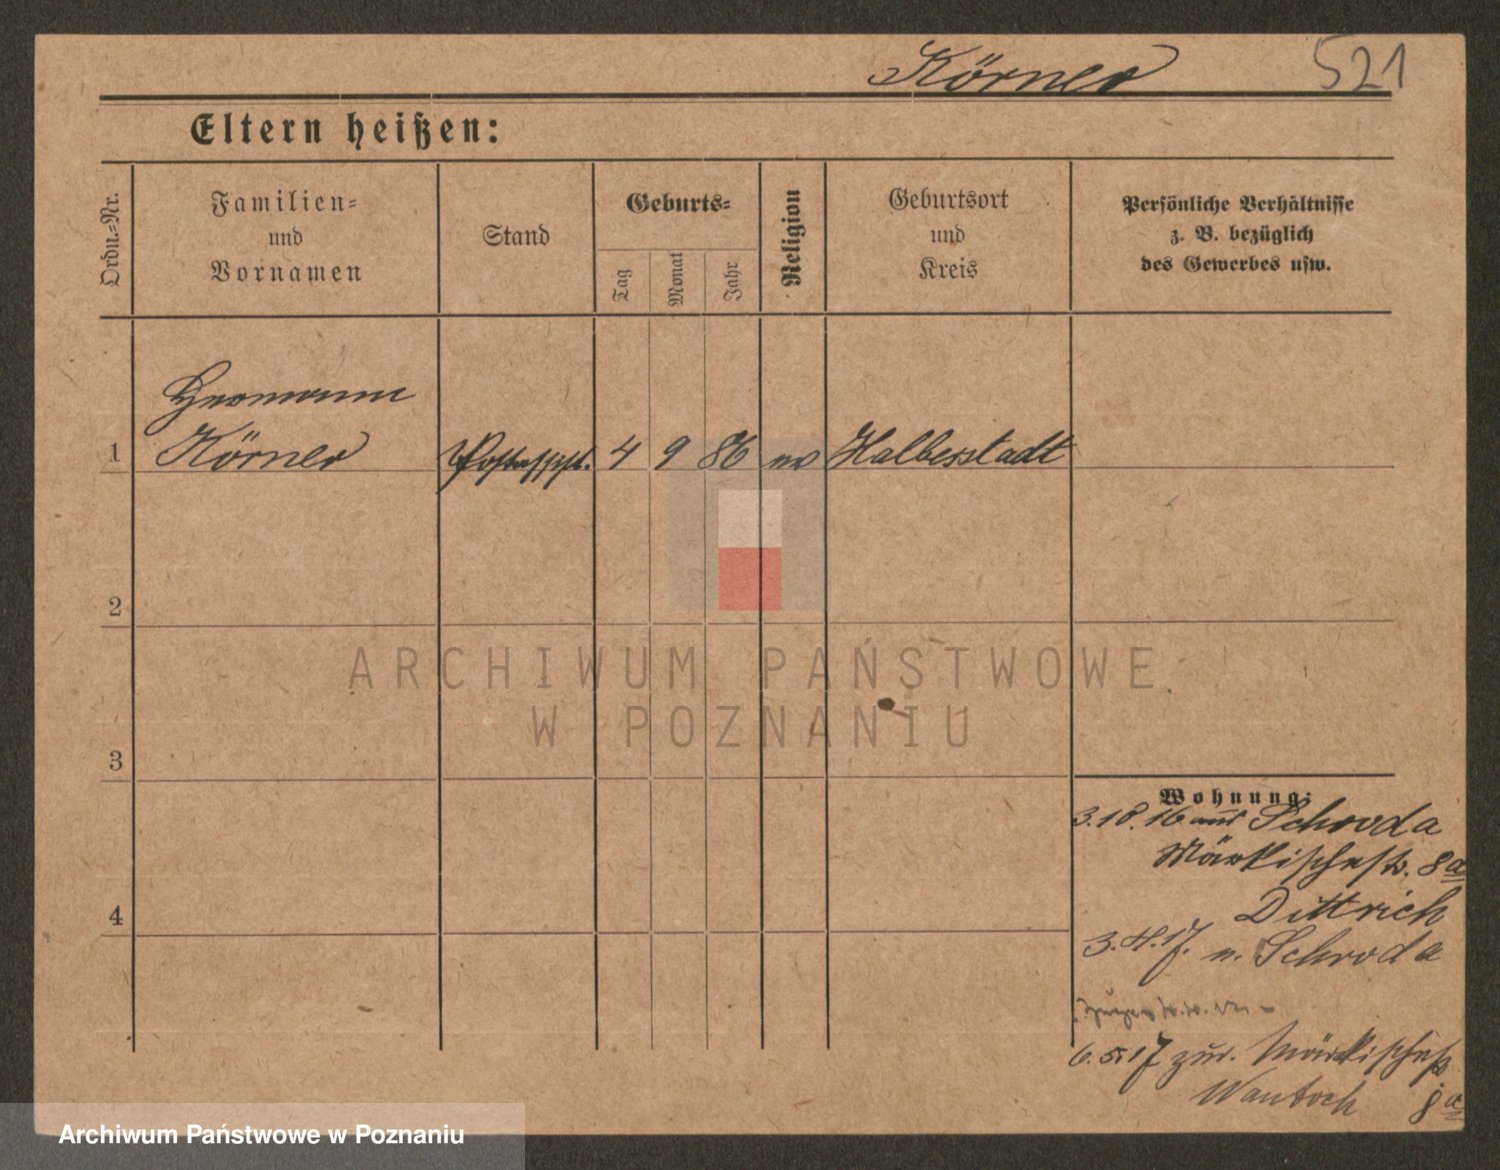 Körner 521
Eltern heißen:
Ordn.-Nr.
Familien-
und
Vornamen
Stand
Geburts-
Tag
Monat
Jahr
Religion
Geburtsort
und
Kreis
Persönliche Verhältnisse
z. B. bezüglich
des Gewerbes usw.
Hermann
1 Körner Postassist. 4 9 86 ev Halberstadt
2
ARCHIWUM PAŃSTWOWE
W POZNANIU
3
Wohnung:
3.10.16 aus Schroda
Märkischestr. 8a
4
Dittrich
3.4.17. n. Schroda
6.5.17 zur. Märkischestr
8a
Archiwum Państwowe w Poznaniu